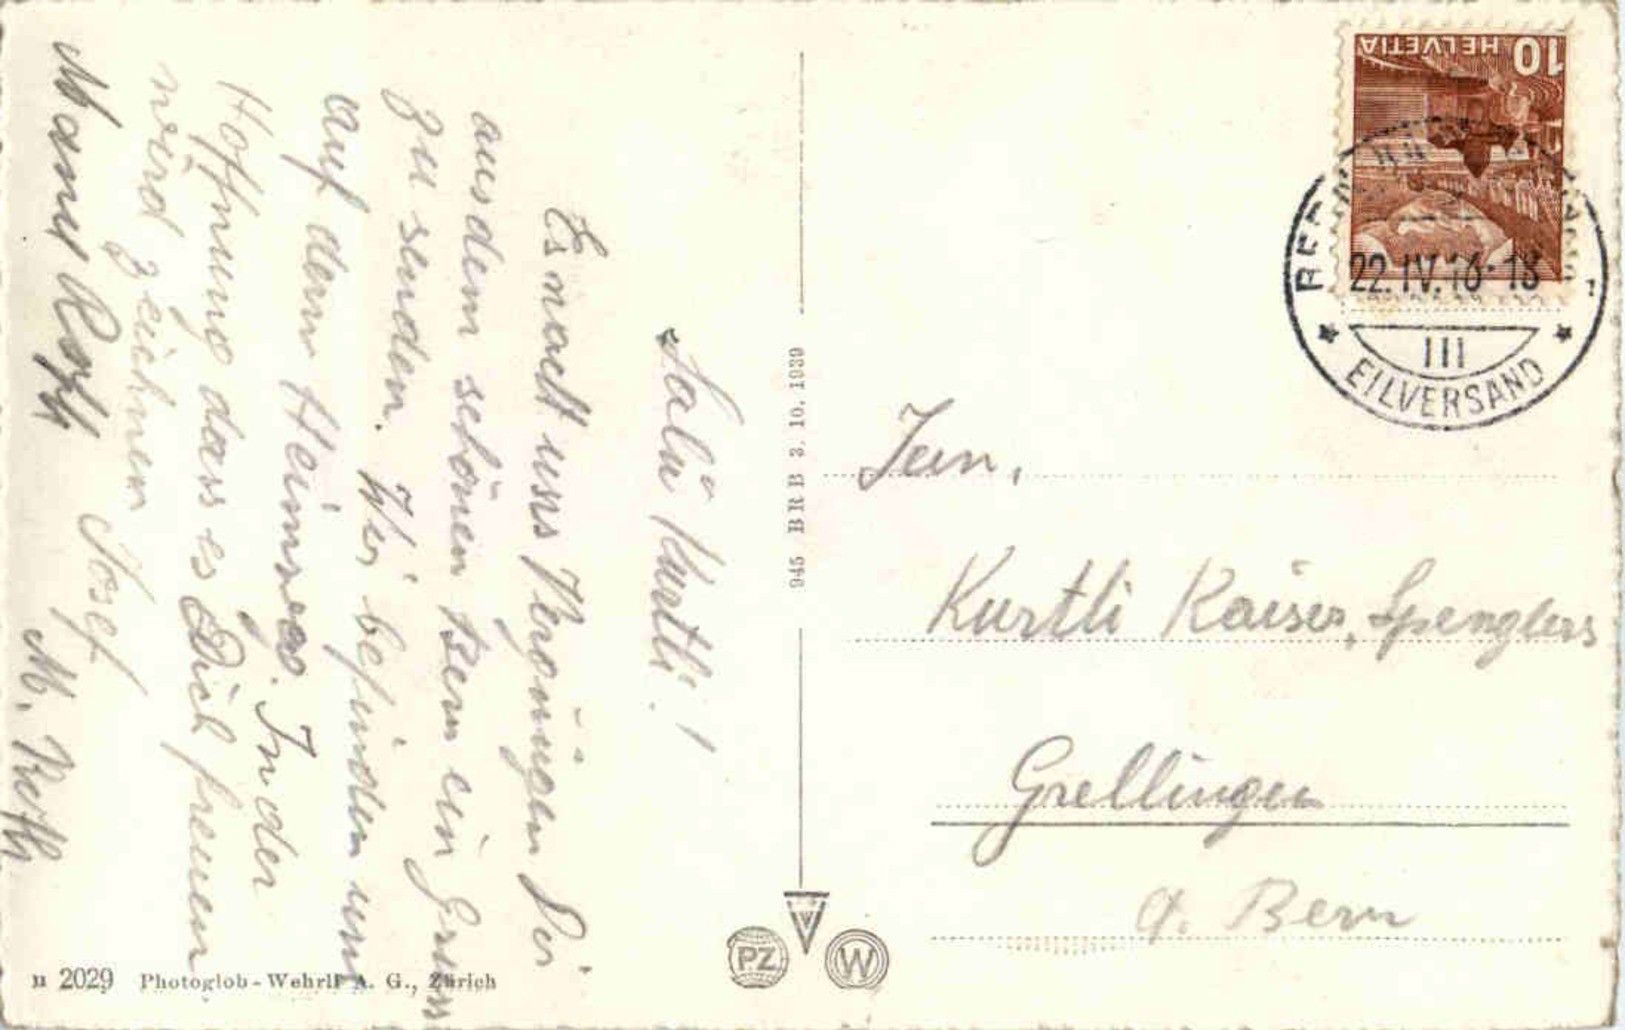 Salü Kurtli!
Es macht uns Vergnügen Dir
aus dem schönen Bern ein Gruss
zu senden. Wir befinden uns
auf dem Heimweg. In der
Hoffnung dass es Dich freuen
wird zeichnen
Josef
M. Roth
945 BRB 3. 10. 1939
HELVETIA
10
22.IV.16-18
III
EILVERSAND
Kurtli Kaiser, Spenglers
Grellingen
Ct. Bern
PZ
W
2029 Photoglob-Wehrli A. G., Zürich